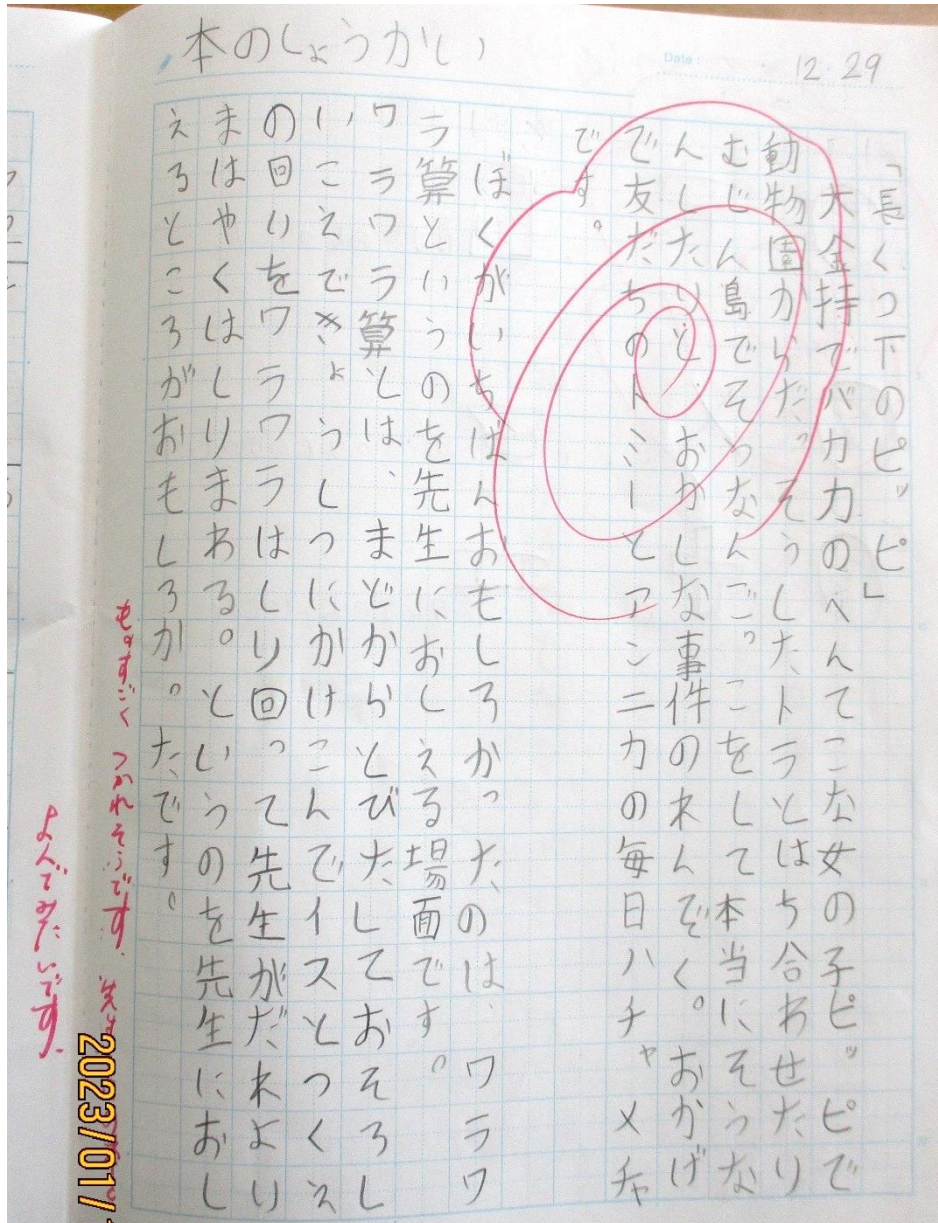 本のしょうかい
Date:
12.29
「長くつ下のピッピ」
大金持でバカ力のへんてこな女の子ピッピで
動物園からだっそうしたトラとはち合わせたり
むじん島でそうなんごっこをして本当にそうな
んしたりと、おかしな事件のれんぞく。おかげ
で友だちのトミーとアンニカの毎日ハチャメチャ
です。
ぼくがいちばんおもしろかったのは、ワラワ
ラ算というのを先生におしえる場面です。
ワラワラ算とは、まどからとびだしておそろし
いこえできょうしつにかけこんでイスとつくえ
の回りをワラワラはしり回って先生がだれより
まはやくはしりまわる。というのを先生におし
えるところがおもしろかったです。
ものすごく つかれそうです。
よんでみたいです。
2023/01/